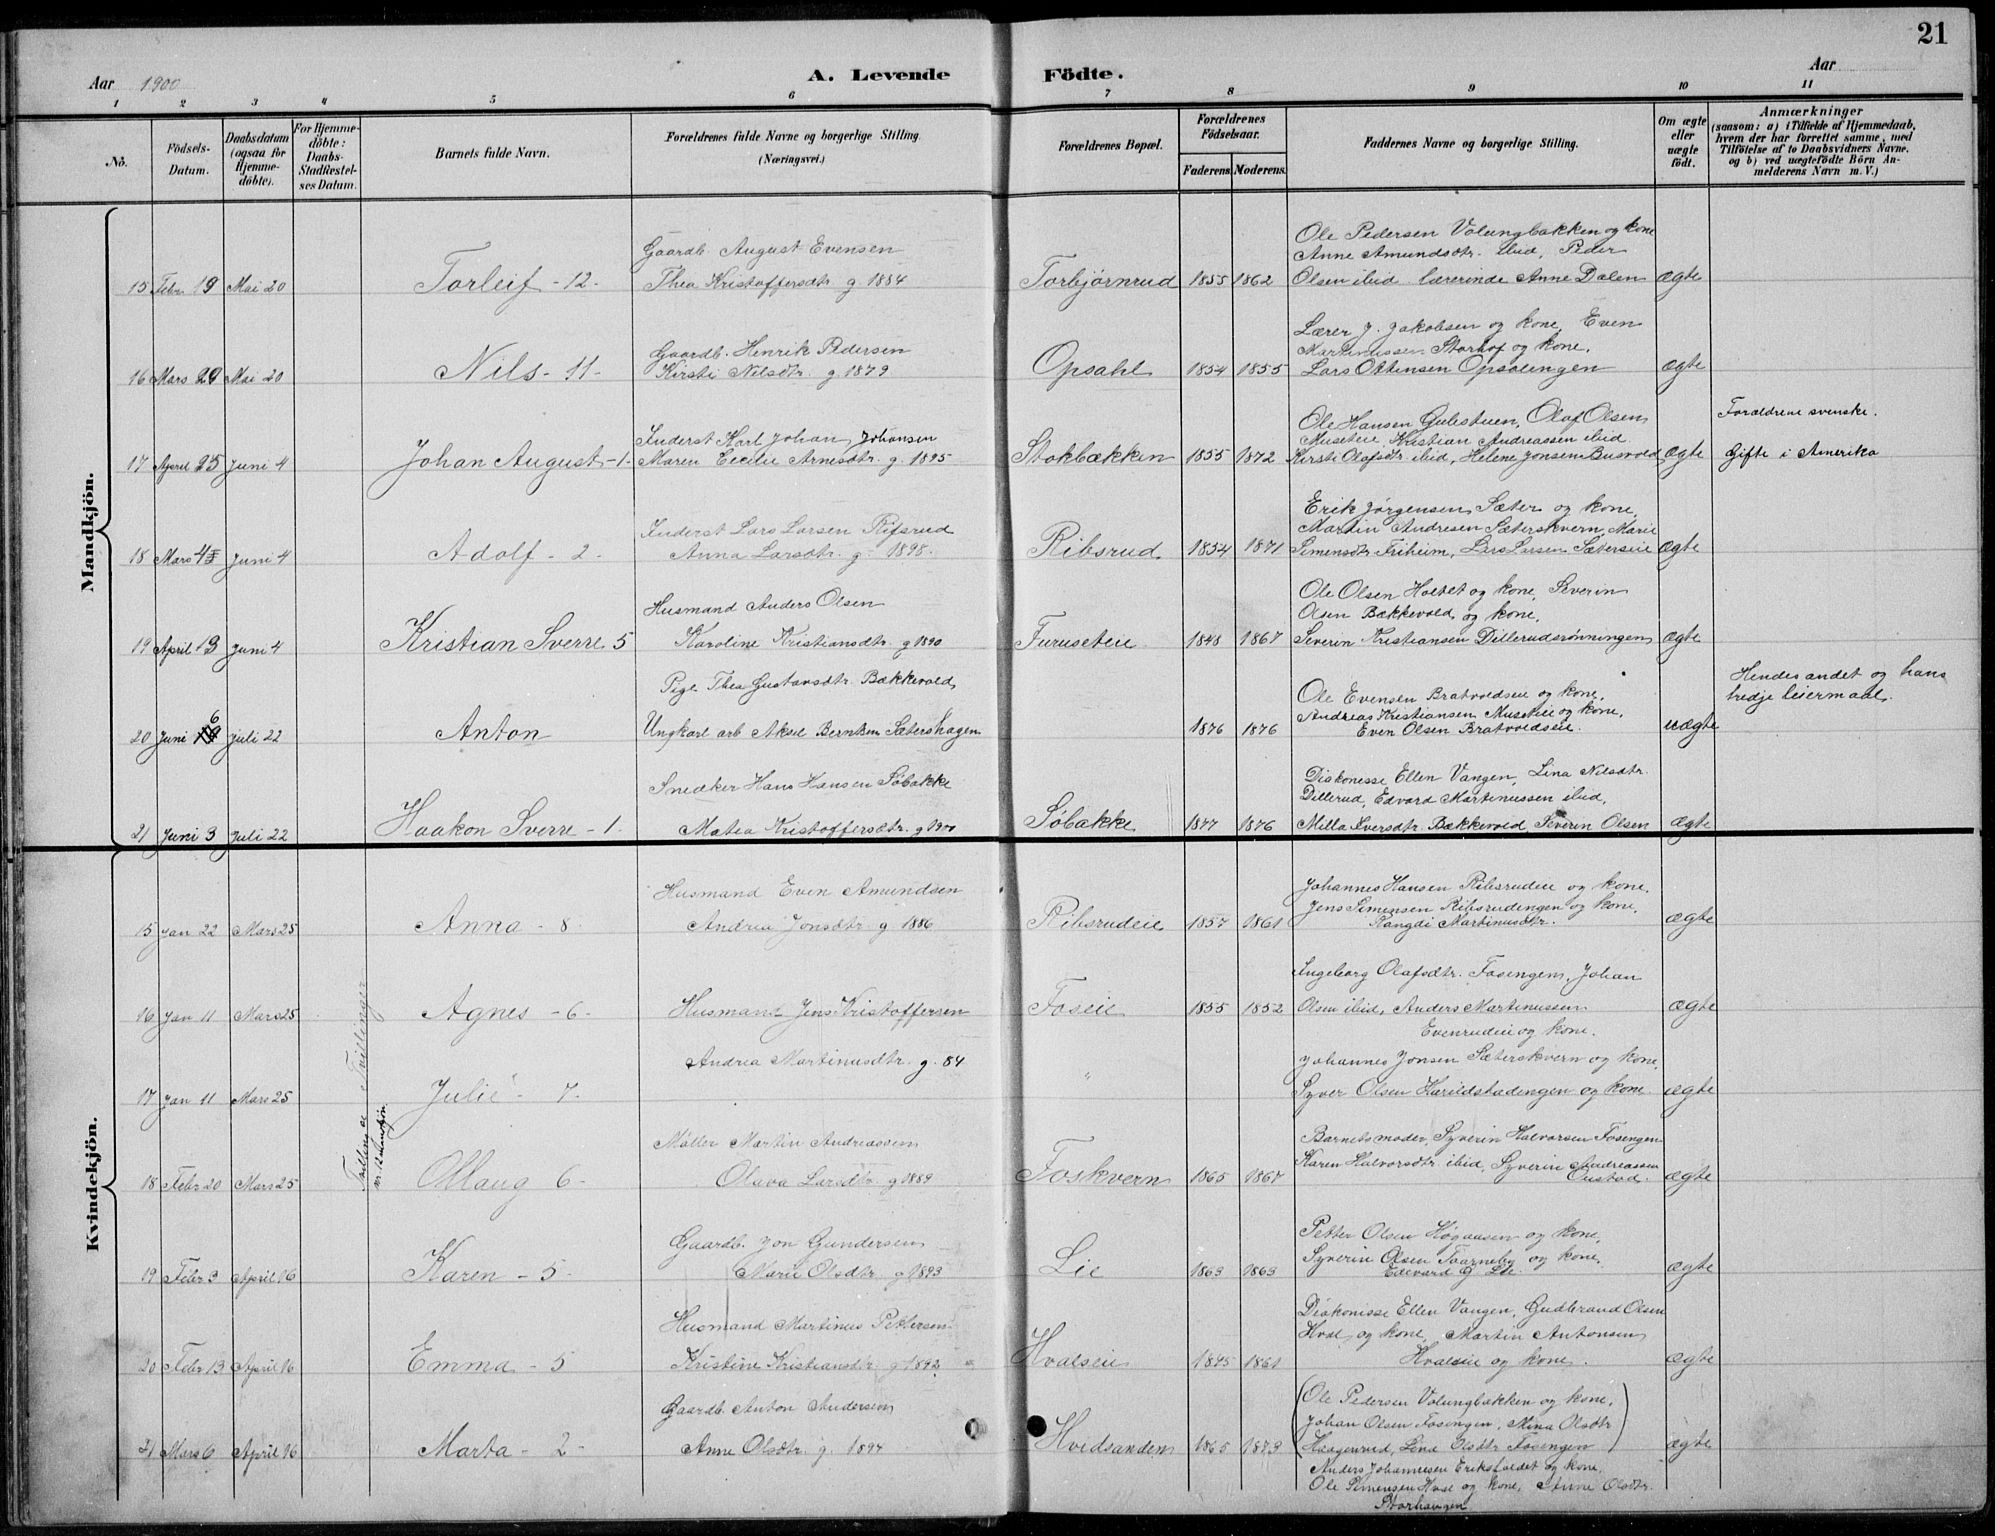 21
Aar 1900
A. Levende Födte.
Aar
1 2 3 4 5 6 7 8 9 10 11
No.
Födsels-Datum.
Daabsdatum (ogsaa for Hjemme-döbte).
For Hjemme-döbte: Daabs-Stadfæstel-ses Datum.
Barnets fulde Navn.
Forældrenes fulde Navne og borgerlige Stilling.
(Næringsvei.)
Forældrenes Bopæl.
Forældrenes Födselsaar.
Faderens. Moderens.
Faddernes Navne og borgerlige Stilling.
Om ægte eller uægte födt.
Anmærkninger
(saasom: a) i Tilfælde af Hjemmedaab, hvem der har forrettet samme, med Tilföielse af to Daabsvidners Navne. og b) ved uægtefödte Börn An-melderens Navn m. V.)
Mandkjön.
Gaardb. August Evensen
Ole Pedersen Volungbakken og kone
Anne Amundsdtr. ibid, Peder
15 Febr 19 Mai 20 Torleif - 12 - Thea Kristoffersdtr g 1884 Torbjørnrud 1855 1862 Olsen ibid. lærerinde Anne Dalen ægte
Gaardb. Henrik Pedersen
Lærer J. Jakobsen og kone, Even
Martinussen Storhof og kone,
16 Mars 29 Mai 20 Nils - 11 - Kirsti Nilsdtr. g 1879 Opsahl 1854 1855 Lars Ottinsen Opsalengen ægte
Inderst Karl Johan Johansen
Ole Hansen Gulestuen, Olaf Olsen
Museteie, Kristian Andreassen ibid
Forældrene svenske.
17 April 25 Juni 4 Johan August - 1 - Maren Cecilie Arnesdtr. g. 1895 Stokbækken 1855 1872 Kirsti Olafsdtr ibid, Helene Jonsen Busvold ægte Gifte i Amerika
Inderst Lars Larsen Ribsrud
Erik Jørgensen Sæter og kone,
Martin Andresen Sæterskvern, Marie
18 Mars 4 Juni 4 Adolf - 2 - Anna Larsdtr. g - 1898. Ribsrud 1854 1871 Simensdtr Friheim, Lars Larsen Sæterseie ægte
Husmand Anders Olsen
Ole Olsen Holtet og kone, Severin
Olsen Bækkevold og kone,
19 April 13 Juni 4 Kristian Sverre 5 Karoline Kristiansdtr g 1890 Furuseteie 1848 1867 Severin Kristiansen Dillerudsrønningen ægte
Pige Thea Gustavsdtr. Bækkevold
Ole Evensen Bratvoldseie og kone,
Andreas Kristiansen Museteie og kone,
Hendes andet og hans
tredje leiermaal.
20 Juni 6 Juli 22 Anton Ungkarl arb Aksel Berntsen Sætershagen 1876 1876 Even Olsen Bratvoldseie. uægte
Snedker Hans Hansen Søbakke
Diakonesse Ellen Vangen, Lina Nilsdtr.
Dillerud, Edvard Martinussen ibid,
21 Juni 3 Juli 22 Haakon Sverre - 1. Matea Kristoffersdtr. g 1900 Søbakke 1877 1876 Milla Iversdtr. Bækkevold Severin Olsen ægte
Kvindekjön.
Husmand Even Amundsen
Johannes Hansen Ribsrudeie og kone.
Jens Simensen Ribsrudengen og kone,
15 Jan 22 Mars 25 Anna - 8 - Andrea Jonsdtr g 1886 Ribsrudeie 1857 1861 Rangdi Martinusdtr. ægte
Tvillinger
Ingeborg Olafsdtr. Fosengen, Johan
16 Jan 11 Mars 25 Agnes - 6 - Husmand Jens Kristoffersen Foseie 1855 1852 Olsen ibid, Anders Martinussen ægte
Evenrudeie og kone.
Andrea Martinusdtr. g. 84
Johannes Jonsen Sæterskvern og kone,
17 Jan 11 Mars 25 Julie - 7. " Syver Olsen Harildstadengen og kone ægte
Møller Martin Andreassen
Barnets moder, Syverin Halvorsen Fosengen
Karen Halvorsdtr ibid, Syverin Andreassen
18 Febr 20 Mars 25 Ollaug 6 - Olava Larsdtr. g 1889 Foskvern 1865 1867 Onstad. ægte
Gaardb. Jon Gundersen
Petter Olsen Høgaasen og kone,
Syverin Olsen Taarneby og kone,
19 Febr 3 April 16 Karen - 5 - Marie Olsdtr. g 1893 Lie 1863 1863 Edevard G. Lie. ægte
Husmand Martinus Pettersen
Diakonisse Ellen Vangen, Gudbrand Olsen
Hval og kone, Martin Antonsen
20 Febr 13 April 16 Emma - 5 Kristine Kristiansdtr. g 1892 Hvalseie 1845 1861 Hvalseie og kone. ægte
Gaardb. Anton Andersen
Ole Pedersen Volungbakken og kone,
Johan Olsen Fosengen, Mina Olsdtr
21 Mars 6 April 16 Marta - 2 - Anne Olsdtr. g. 1894 Hvidsanden 1865 1873 Haagenrud, Lina Olsdtr Fosengen ægte
Anders Johannesen Eriksfaldet og kone,
Ole Simensen Hval og kone, Anne Olsdtr.
Storhaugen